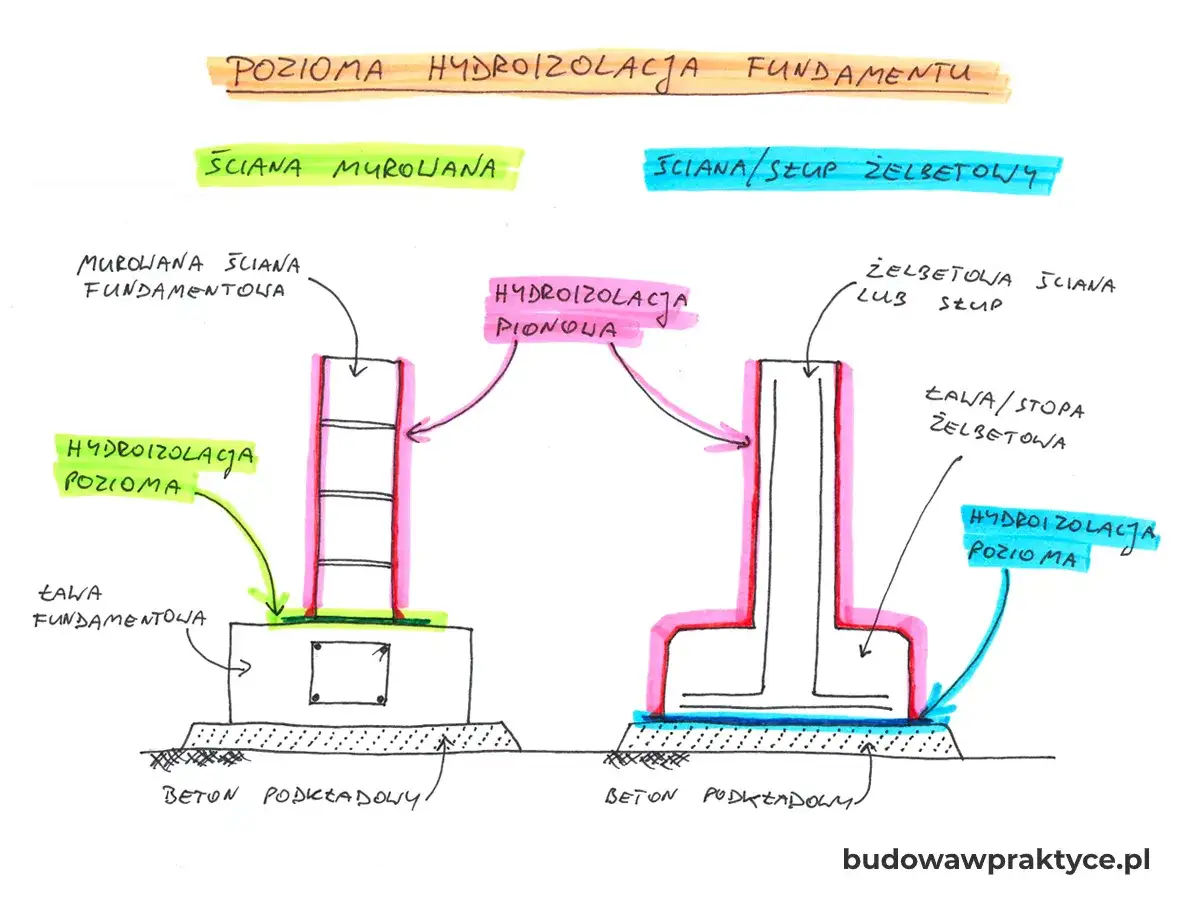 POZIOMA HYDROIZOLACJA FUNDAMENTU
ŚCIANA MUROWANA
ŚCIANA/SŁUP ŻELBETOWY
MUROWANA ŚCIANA
FUNDAMENTOWA
HYDROIZOLACJA
PIONOWA
ŻELBETOWA ŚCIANA
LUB SŁUP
ŁAWA/STOPA
ŻELBETOWA
HYDROIZOLACJA
POZIOMA
HYDROIZOLACJA
POZIOMA
ŁAWA
FUNDAMENTOWA
BETON PODKŁADOWY
BETON PODKŁADOWY
budowawpraktyce.pl